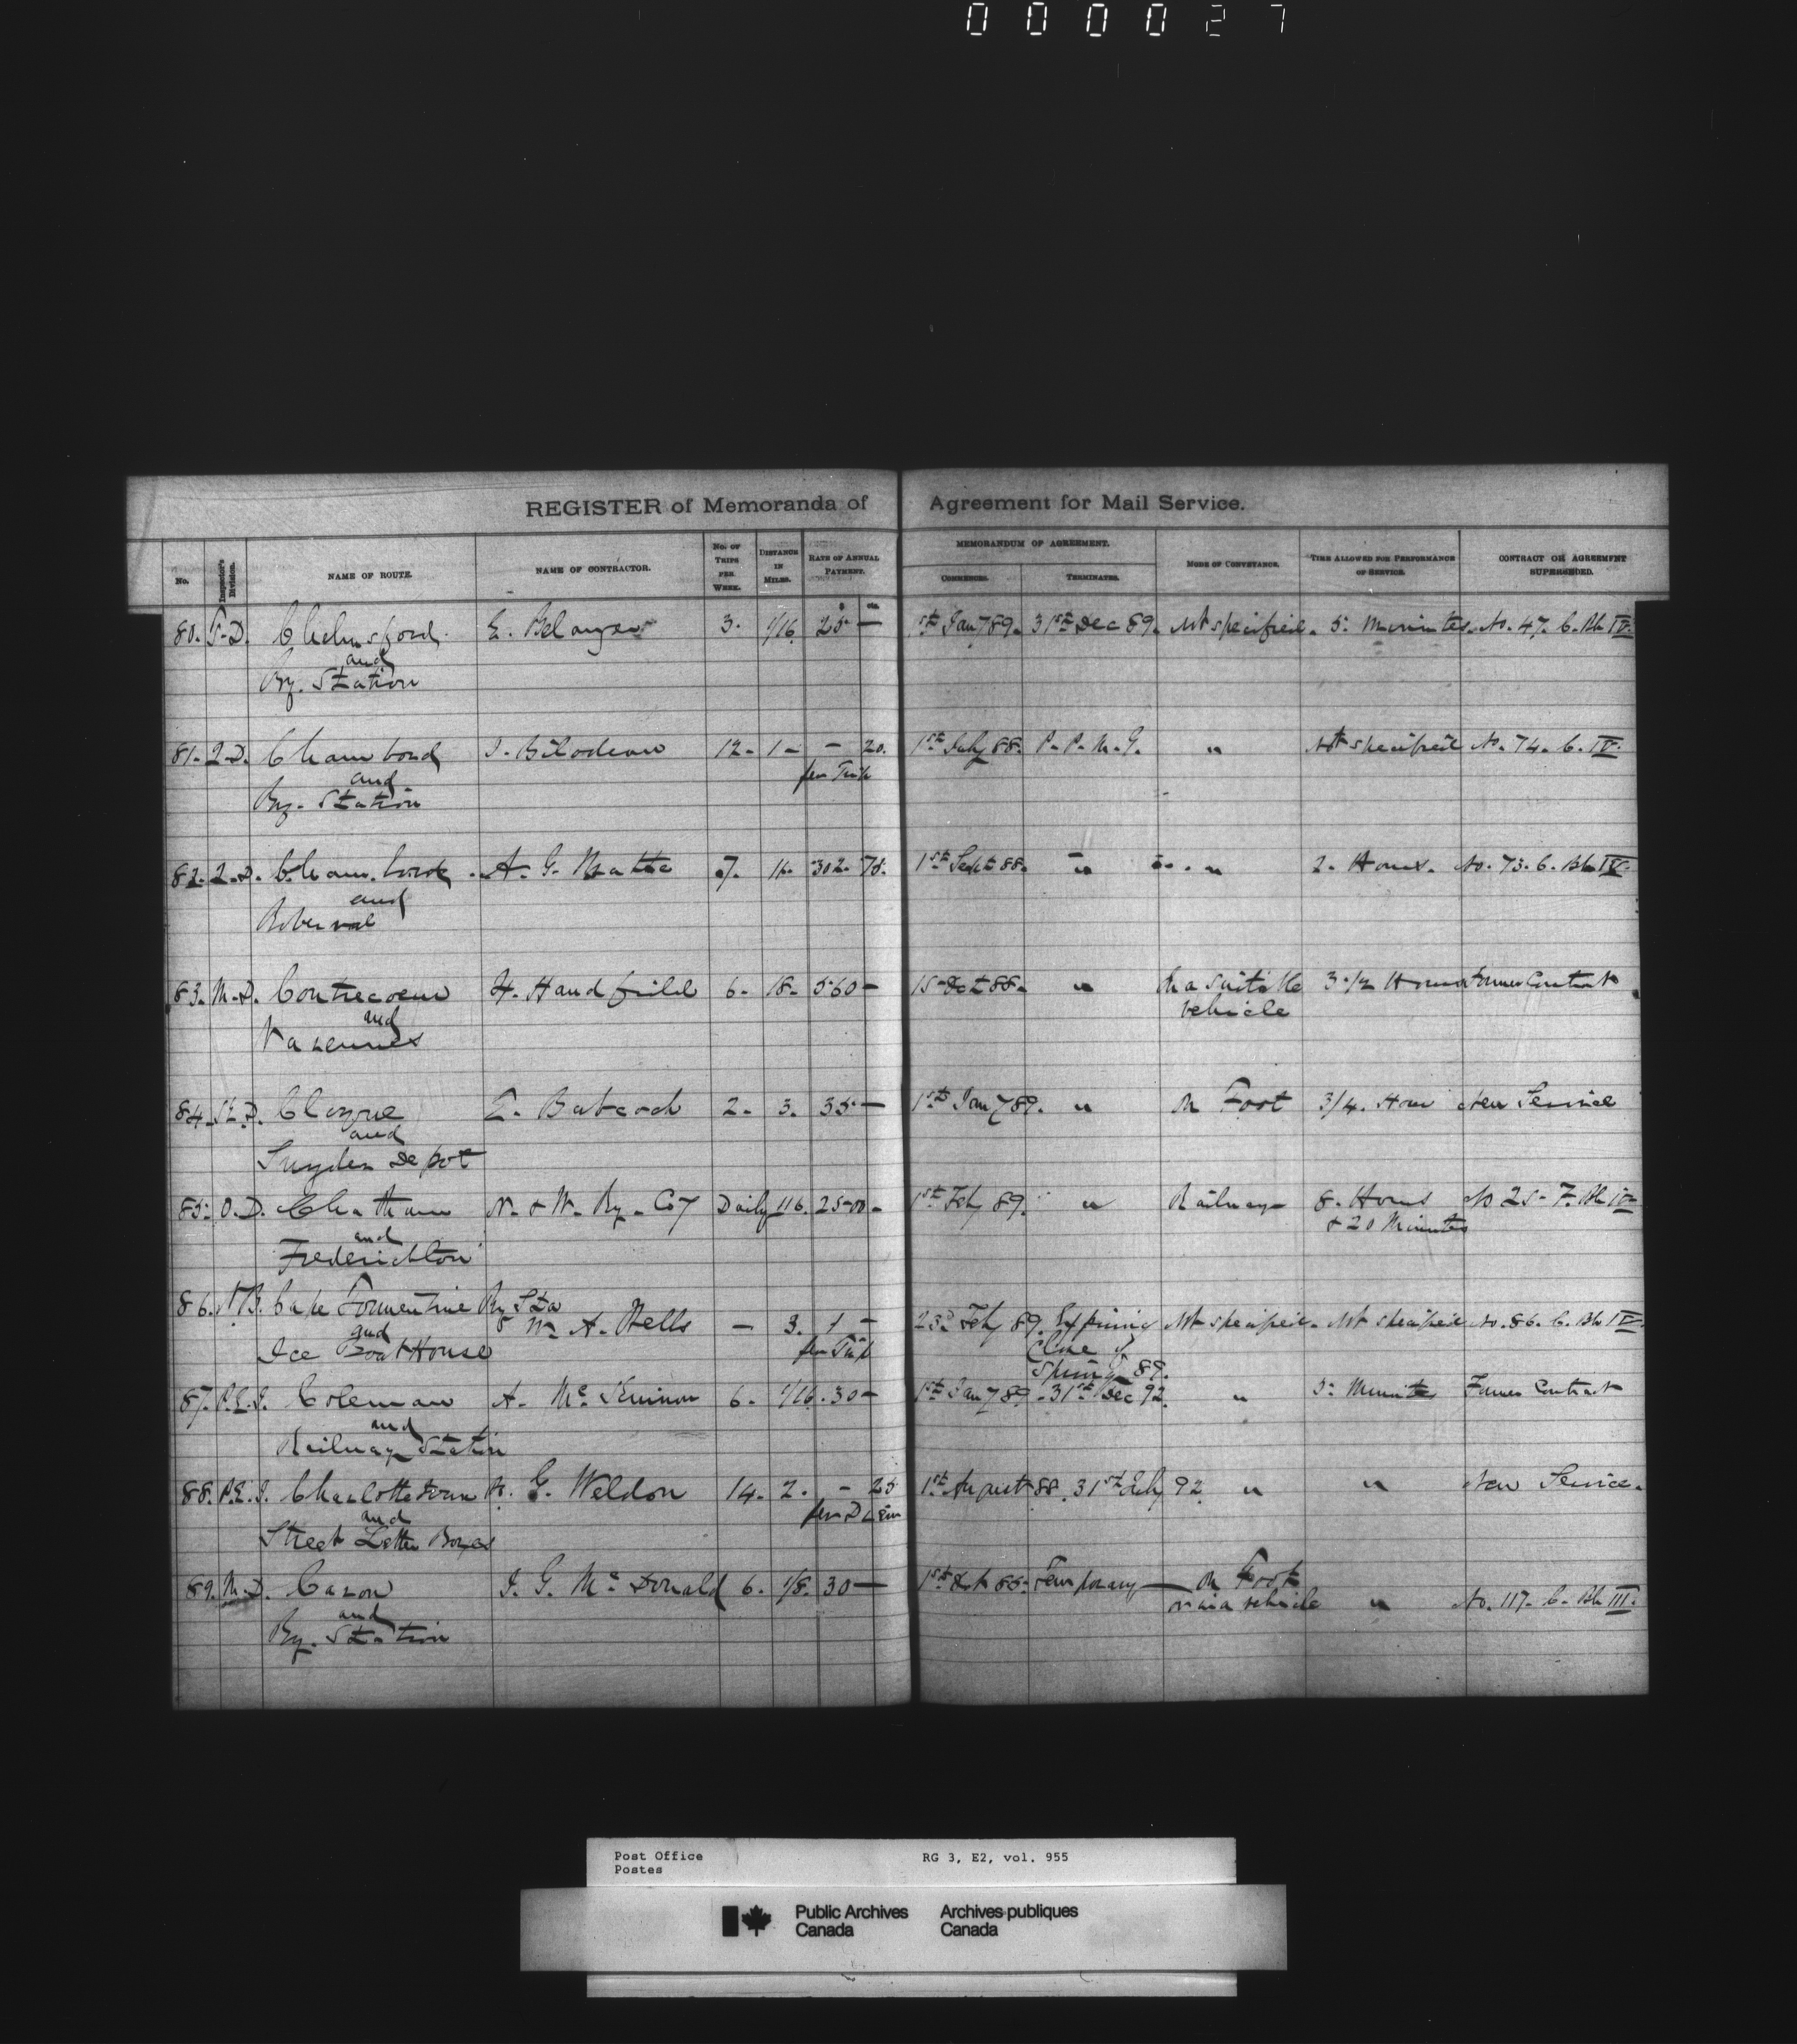 0 0 0 0 2 7
REGISTER of Memoranda of Agreement for Mail Service.
No. Inspector's Division. NAME OF ROUTE. NAME OF CONTRACTOR. No. OF TRIPS PER WEEK. DISTANCE IN MILES. RATE OF ANNUAL PAYMENT. MEMORANDUM OF AGREEMENT. COMMENCES. TERMINATES. MODE OF CONVEYANCE. TIME ALLOWED FOR PERFORMANCE OF SERVICE. CONTRACT OR AGREEMENT SUPERSEDED.
$ cts.
80. T.D. Chelmsford E. Belanger 3. 1/16 25 — 1st Jany 89. 31st Dec 89. Not specified. 5 Minutes. No. 47. C. Bk IV.
and
Ry. Station
81. 2.D. Chambord J. Bilodeau 12. 1 - - 20. 1st July 88. P. P. M. G. " Not specified No. 74. C. IV.
and per Trip
Ry. Station
82. 2.D. Chambord A. G. Matte 7. 14. 302. 78. 1st Sept 88. " " 2. Hours. No. 73. C. Bk IV.
and
Roberval
83. M.D. Contrecoeur H. Handfield 6. 18. 560 - 1st Oct 88. " In a suitable 3 1/2 Hours Former Contract
and vehicle
Varennes
84. K.D. Cloyne E. Babcock 2. 3. 35 — 1st Jany 89. " On Foot 3/4. Hour New Service
and
Snyder Depot
85. O.D. Chatham N. & W. Ry. Coy Daily 116. 2500. 1st Feby 89. " Railway 8. Hours No 25. F. Bk IV
and & 20 Minutes
Frederickton
86. N.B. Cape Tormentine Ry Sta
and Wm. A. Wells — 3. 1 - 23d Feby 89. Expiring Not specified. Not specified No. 86. C. Bk IV.
Ice Boat House per Trip Close of
Spring 89.
87. P.E.I. Coleman A. Mc Kinnon 6. 1/16. 30 - 1st Jany 89. 31st Dec 92. " 5 Minutes Former Contract
and
Railway Station
88. P.E.I. Charlottetown G. Weldon 14. 2. - 25 1st August 88. 31st July 92 " " New Service.
and per Diem
Street Letter Boxes
89. M.D. Caron J. G. Mc Donald 6. 1/8. 30 — 1st Temporary — On Foot
and or in a vehicle " No. 117. C. Bk III.
Ry. Station
Post Office RG 3, E2, vol. 955
Postes
Public Archives Archives publiques
Canada Canada